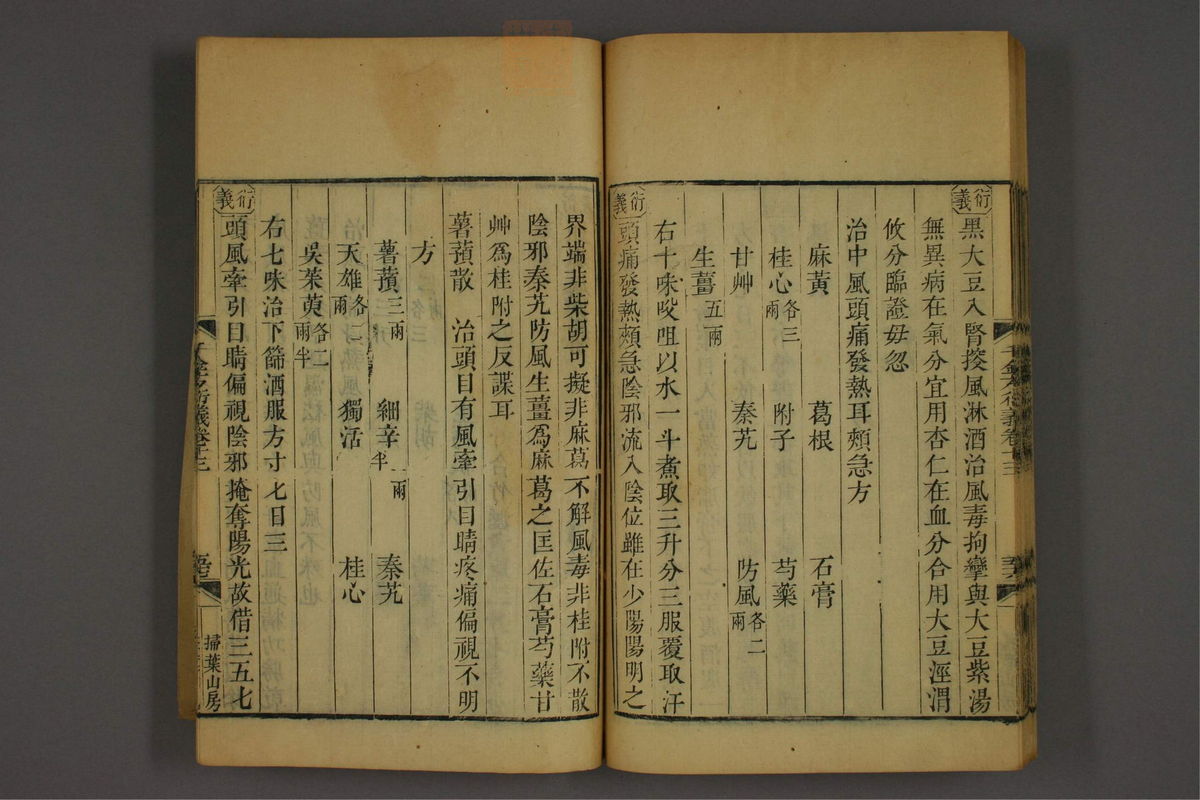 衍義黑大豆入腎搜風淋酒治風毒拘攣與大豆紫湯
無異病在氣分宜用杏仁在血分合用大豆涇渭
攸分臨證毋忽
治中風頭痛發熱耳頰急方
麻黃 葛根 石膏
桂心各三兩 附子 芍藥
甘艸 秦艽 防風各二兩
生薑五兩
右十味㕮咀以水一斗煮取三升分三服覆取汗
衍義頭痛發熱頰急陰邪流入陰位雖在少陽陽明之
界端非柴胡可擬非麻葛不解風毒非桂附不散
陰邪秦艽防風生薑為麻葛之匡佐石膏芍藥甘
艸為桂附之反諜耳
薯蕷散 治頭目有風牽引目睛疼痛偏視不明
方
薯蕷三兩 細辛一兩半 秦艽
天雄各二兩 獨活 桂心
吳茱萸各二兩半
右七味治下篩酒服方寸匕日三
衍義頭風牽引目睛偏視陰邪掩奪陽光故借三五七
千金方衍義卷十三
掃葉山房